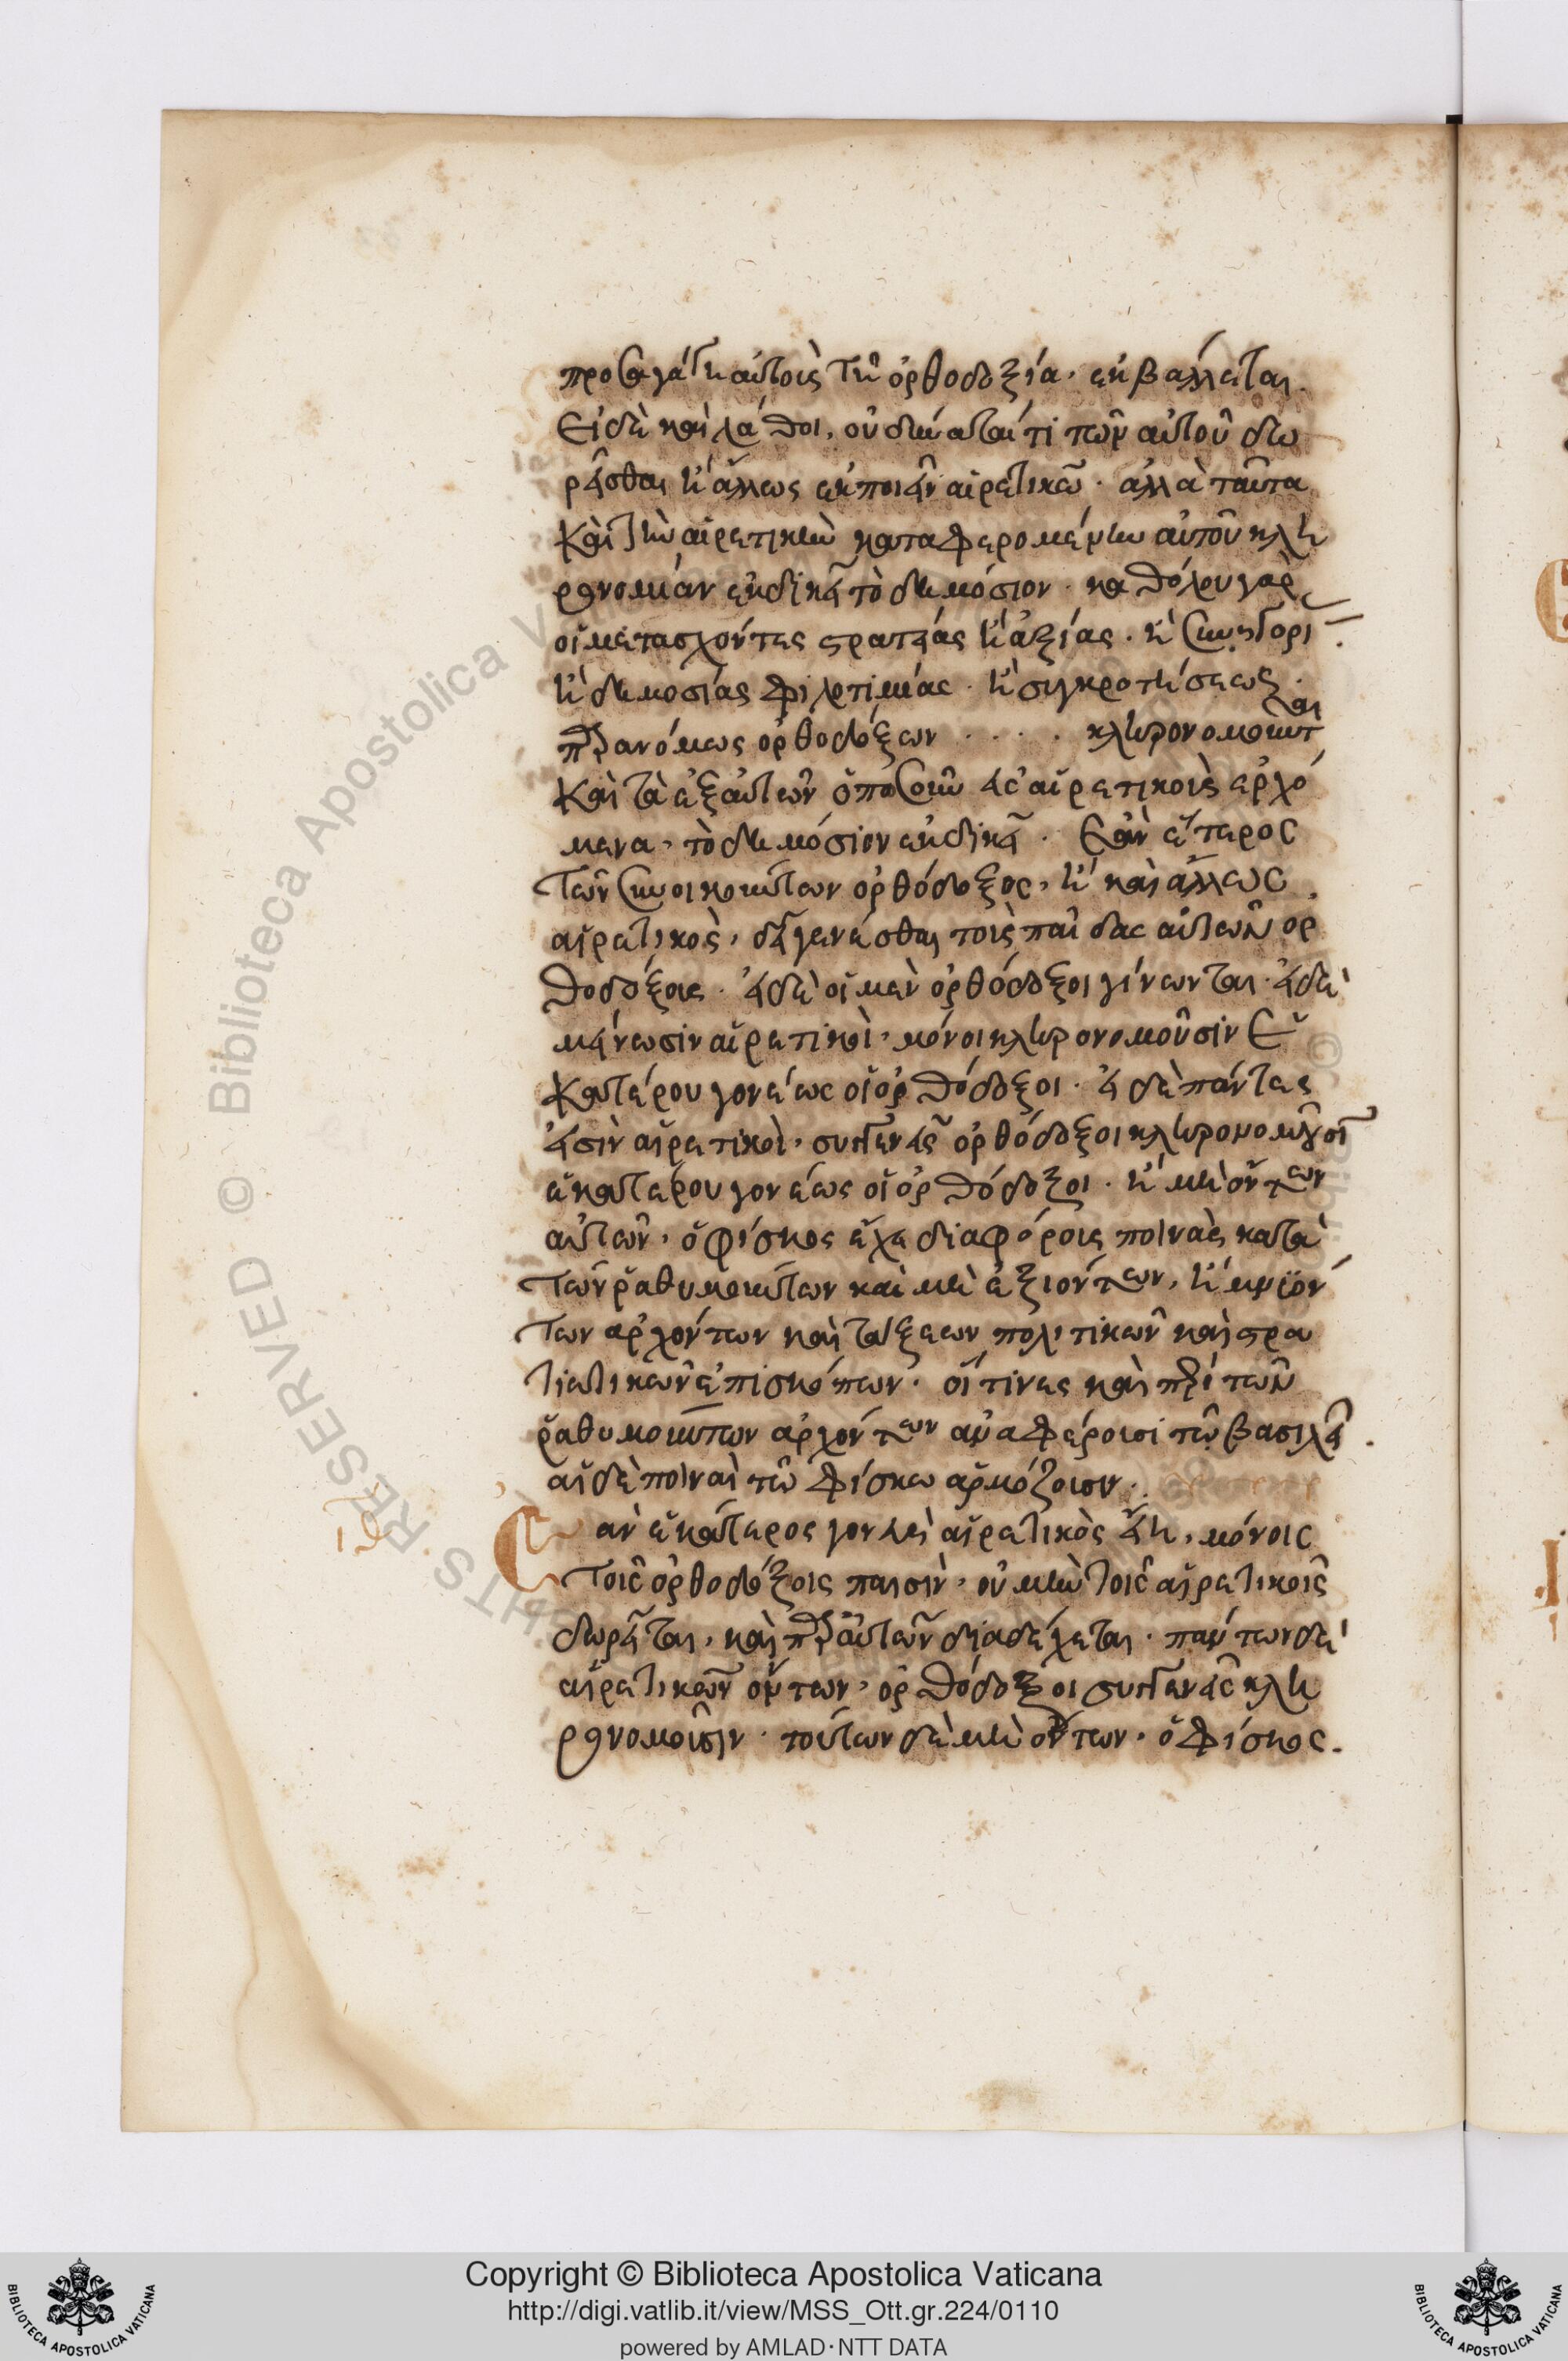 προσαγάγῃ αὐτοὺς τῇ ὀρθοδοξία. ἐκβάλλεται.
Εἰ δὲ καὶ λάθοι, οὐ δύναται τι τῶν αὐτοῦ δω
ρεῖσθαι ἢ ἄλλως ἐκποιεῖν αἱρετικῶ. ἀλλὰ ταῦτα
Καὶ τὴν αἱρετικὴν καταφερομένην αὐτοῦ κλη
ρονομίαν ἐκδικεῖ τὸ δημόσιον. καθόλου γὰρ
οἱ μετασχόντες στρατείας ἢ ἀξίας. ἢ συνηγορι
ἢ δημοσίας φιλοτιμίας. ἢ συγκροτήσεως.
παρανόμως ὀρθοδόξων . . . . κληρονομοῦνται
Καὶ τὰ ἐξ αὐτῶν ὁπωσοῦν εἰς αἱρετικοὺς ἐρχό
μενα, τὸ δημόσιον ἐκδικεῖ. Ἐὰν ἕτερος
τῶν συνοικούντων ὀρθόδοξος, ἢ καὶ ἄλλως
αἱρετικὸς, δεῖ γενέσθαι τοὺς παῖδας αὐτῶν ὀρ
θοδόξους. εἰ δὲ οἱ μὲν ὀρθόδοξοι γίνωνται. εἰ δὲ
μείνωσιν αἱρετικοὶ, μόνοι κληρονομοῦσιν ἑ
κατέρου γονέως οἱ ὀρθόδοξοι. εἰ δὲ πάντες
εἰσὶν αἱρετικοὶ, συγγενεῖς ὀρθόδοξοι κληρονομοῦσι
ἑκατέρου γονέως οἱ ὀρθόδοξοι. ἢ μὴ ὄντων
αὐτῶν, ὁ φίσκος ἔχε διαφόρους ποινὰς κατὰ
τῶν ῥαθυμούντων καὶ μὴ ἐξιόντων, ἢ μηνυόν
των ἀρχόντων καὶ τάξεων πολιτικῶν καὶ στρα
τιωτικῶν ἐπισκόπων. οἵτινες καὶ περὶ τῶν
ῥαθυμούντων ἀρχόντων ἀναφέρουσι τῶ βασιλεῖ.
αἱ δὲ ποιναὶ τῶ φίσκω ἁρμόζουσιν.
ιδ Ἐὰν ἑκάτερος γονεὺς αἱρετικὸς εἴη, μόνοις
τοῖς ὀρθοδόξοις παισὶν, οὐ μὴν τοῖς αἱρετικοῖς
δωρεῖται, καὶ παρ' αὐτῶν διαδέχεται. πάντων δὲ
αἱρετικῶν ὄντων, ὀρθόδοξοι συγγενεῖς κλη
ρονομοῦσιν. τούτων δὲ μὴ ὄντων, ὁ φίσκος.
Copyright © Biblioteca Apostolica Vaticana
http://digi.vatlib.it/view/MSS_Ott.gr.224/0110
powered by AMLAD·NTT DATA